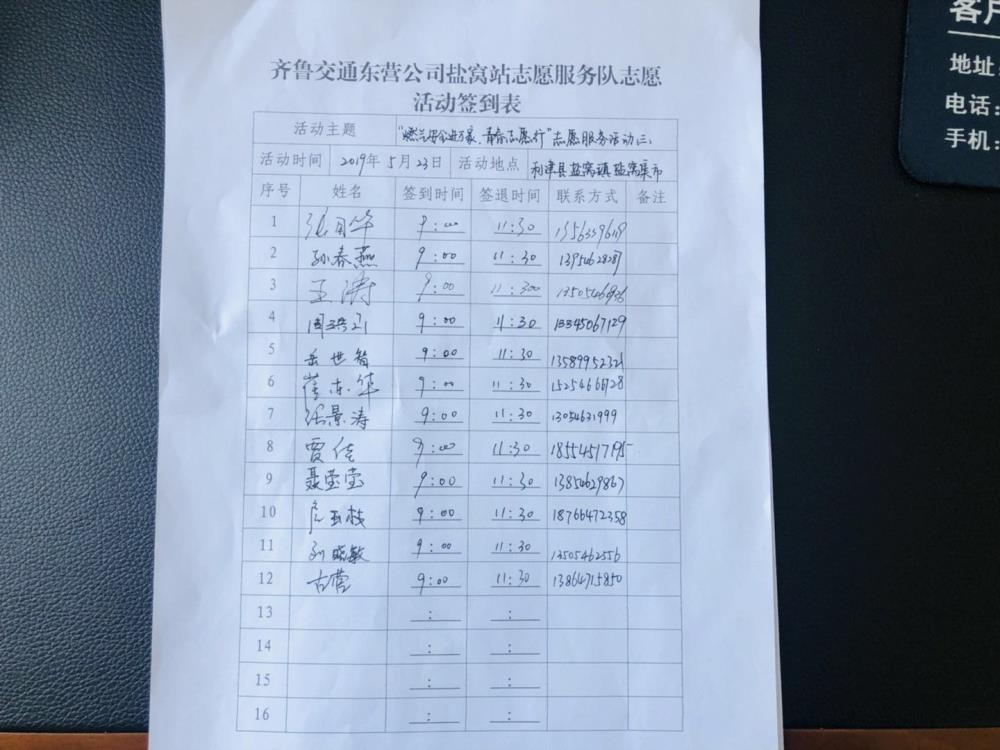 齐鲁交通东营公司盐窝站志愿服务队志愿
活动签到表
活动主题 "燃气安全进万家、青春志愿行"志愿服务活动(三)
活动时间 2019年5月23日 活动地点 利津县盐窝镇盐窝集市
序号 姓名 签到时间 签退时间 联系方式 备注
1 9:00 11:30
2 孙春燕 9:00 11:30
3 王涛 9:00 11:300
4 9:00 11:30 13345067129
5 岳世智 9:00 11:30 13589952321
6 崔东华 9:00 11:30 15254666728
7 任景涛 9:00 11:30 13054631999
8 贾佳 9:00 11:30 18554517195
9 聂莹莹 9:00 11:30 13854629867
10 房玉枝 9:00 11:30 18766472358
11 刘晓敏 9:00 11:30 13505462556
12 古营 9:00 11:30 13864715850
13 : :
14 : :
15 : :
16 : :
客户
地址:
电话:
手机: